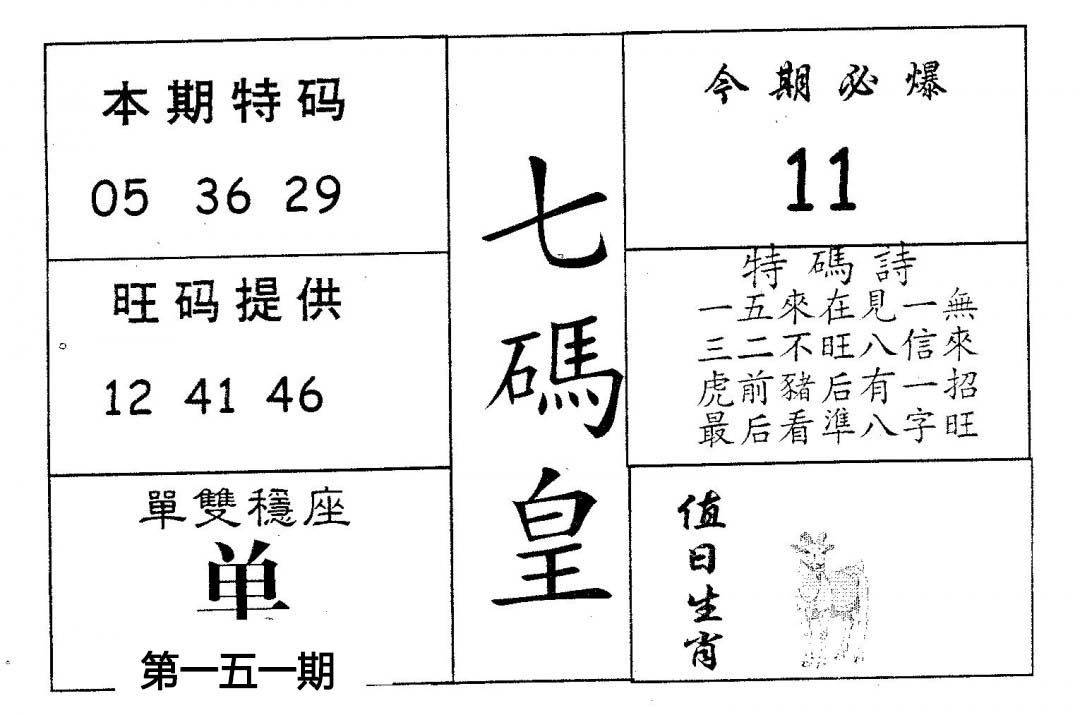 本期特码
05 36 29
旺码提供
12 41 46
單雙穩座
单
第一五一期
七碼皇
今期必爆
11
特碼詩
一五來在見一無
三二不旺八信來
虎前豬后有一招
最后看準八字旺
值日生肖